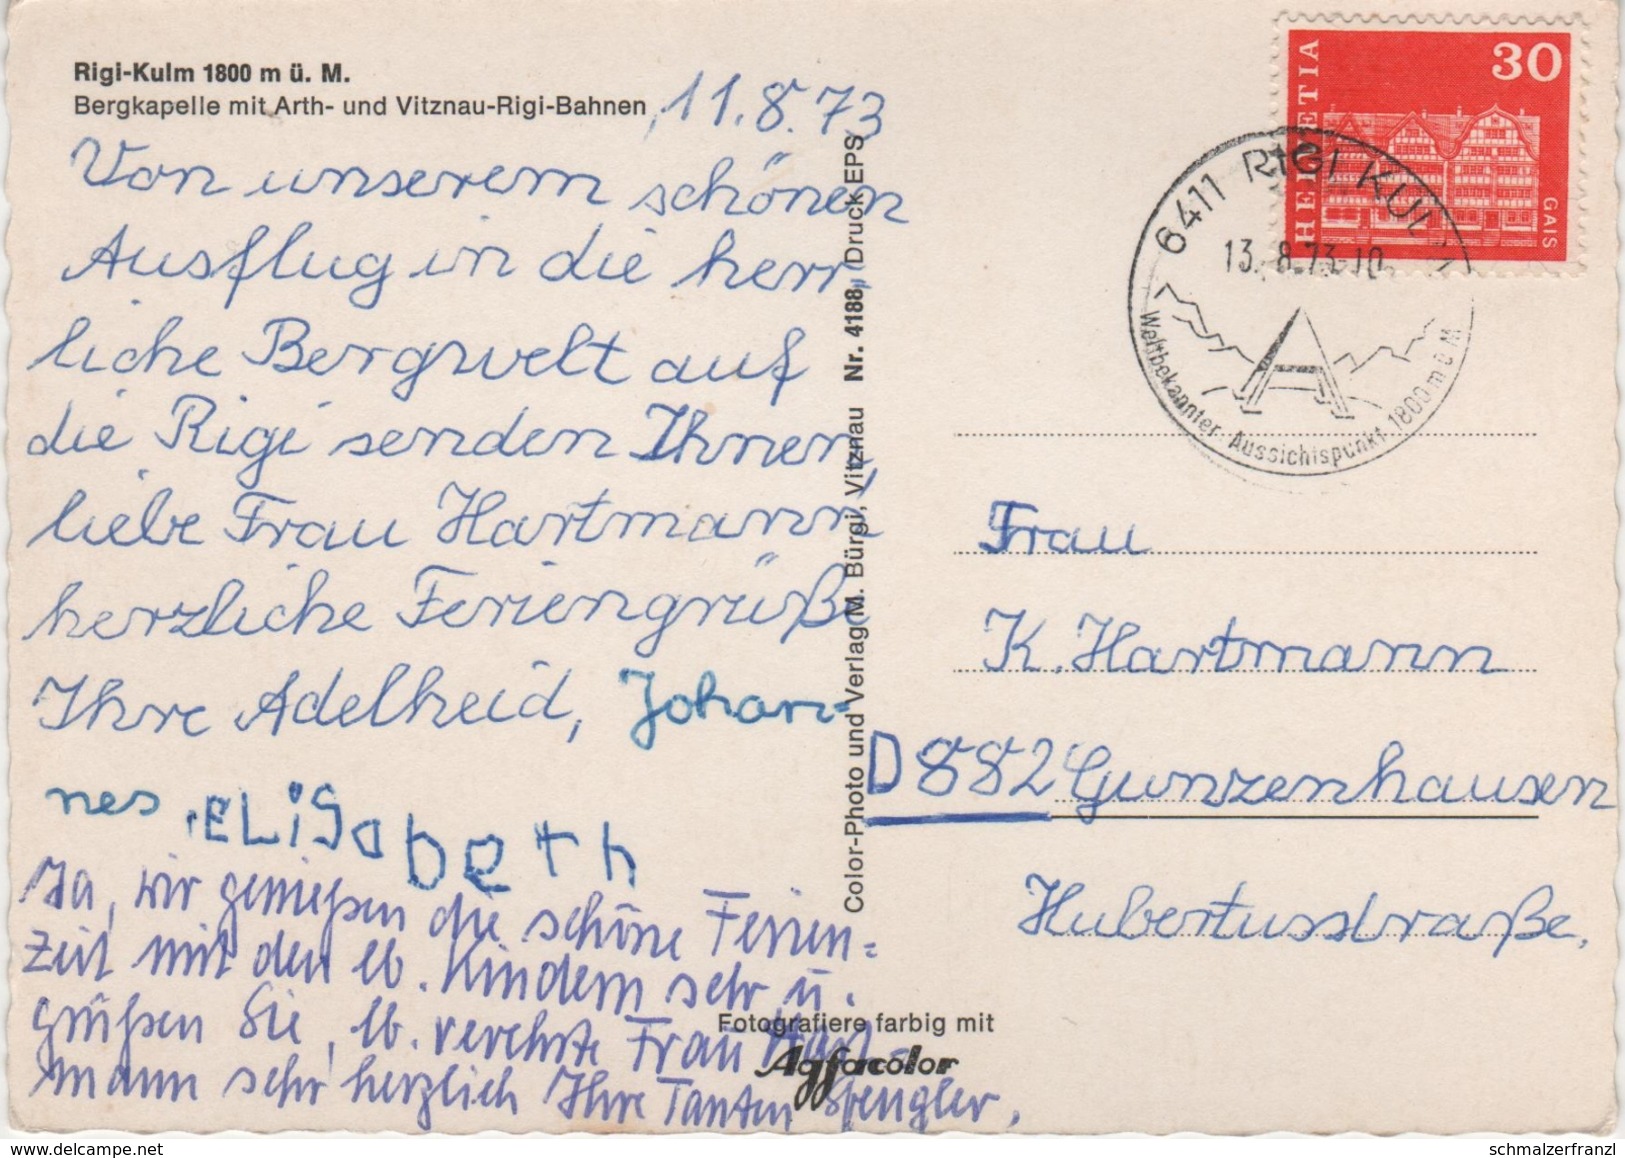 Rigi-Kulm 1800 m ü. M.
Bergkapelle mit Arth- und Vitznau-Rigi-Bahnen
11.8.73
Von unserem schönen
Ausflug in die herr-
liche Bergwelt auf
die Rigi senden Ihnen,
liebe Frau Hartmann,
herzliche Feriengrüße
Ihre Adelheid, Johan-
nes, ELiSabeth
Ja, wir genießen die schöne Ferien=
Zeit mit den lb. Kindern sehr u.
grüßen Sie, lb. verehrte Frau Hart-
mann sehr herzlich Ihre Tanten Spengler.
Color-Photo und Verlag M. Bürgi, Vitznau Nr. 4188, Druck EPS
Fotografiere farbig mit
Agfacolor
HELVETIA
30
GAIS
6411 RIGI KULM
13. 8. 73. 10
Weltbekannter Aussichtspunkt 1800 m ü M
Frau
K. Hartmann
D 882 Gunzenhausen
Hubertusstraße.
www.delcampe.net
schmalzerfranzl